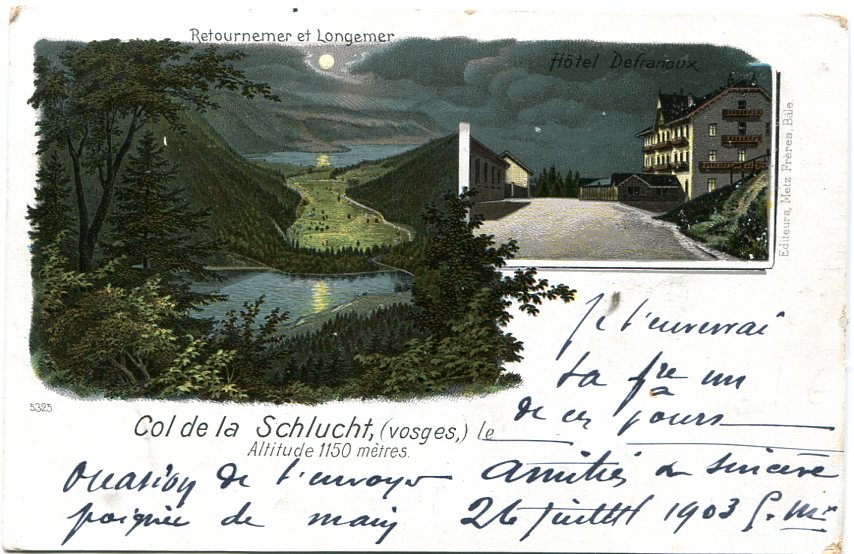 Retournemer et Longemer
Hôtel Defranoux
Editeurs, Metz Frères, Bâle
5325
Col de la Schlucht, (vosges,) le
Altitude 1150 mètres.
Je t'enverrai
ta fre un
de ces jours
Occasion de t'envoyer amitiés sincère
poignée de main 26 juillet 1903